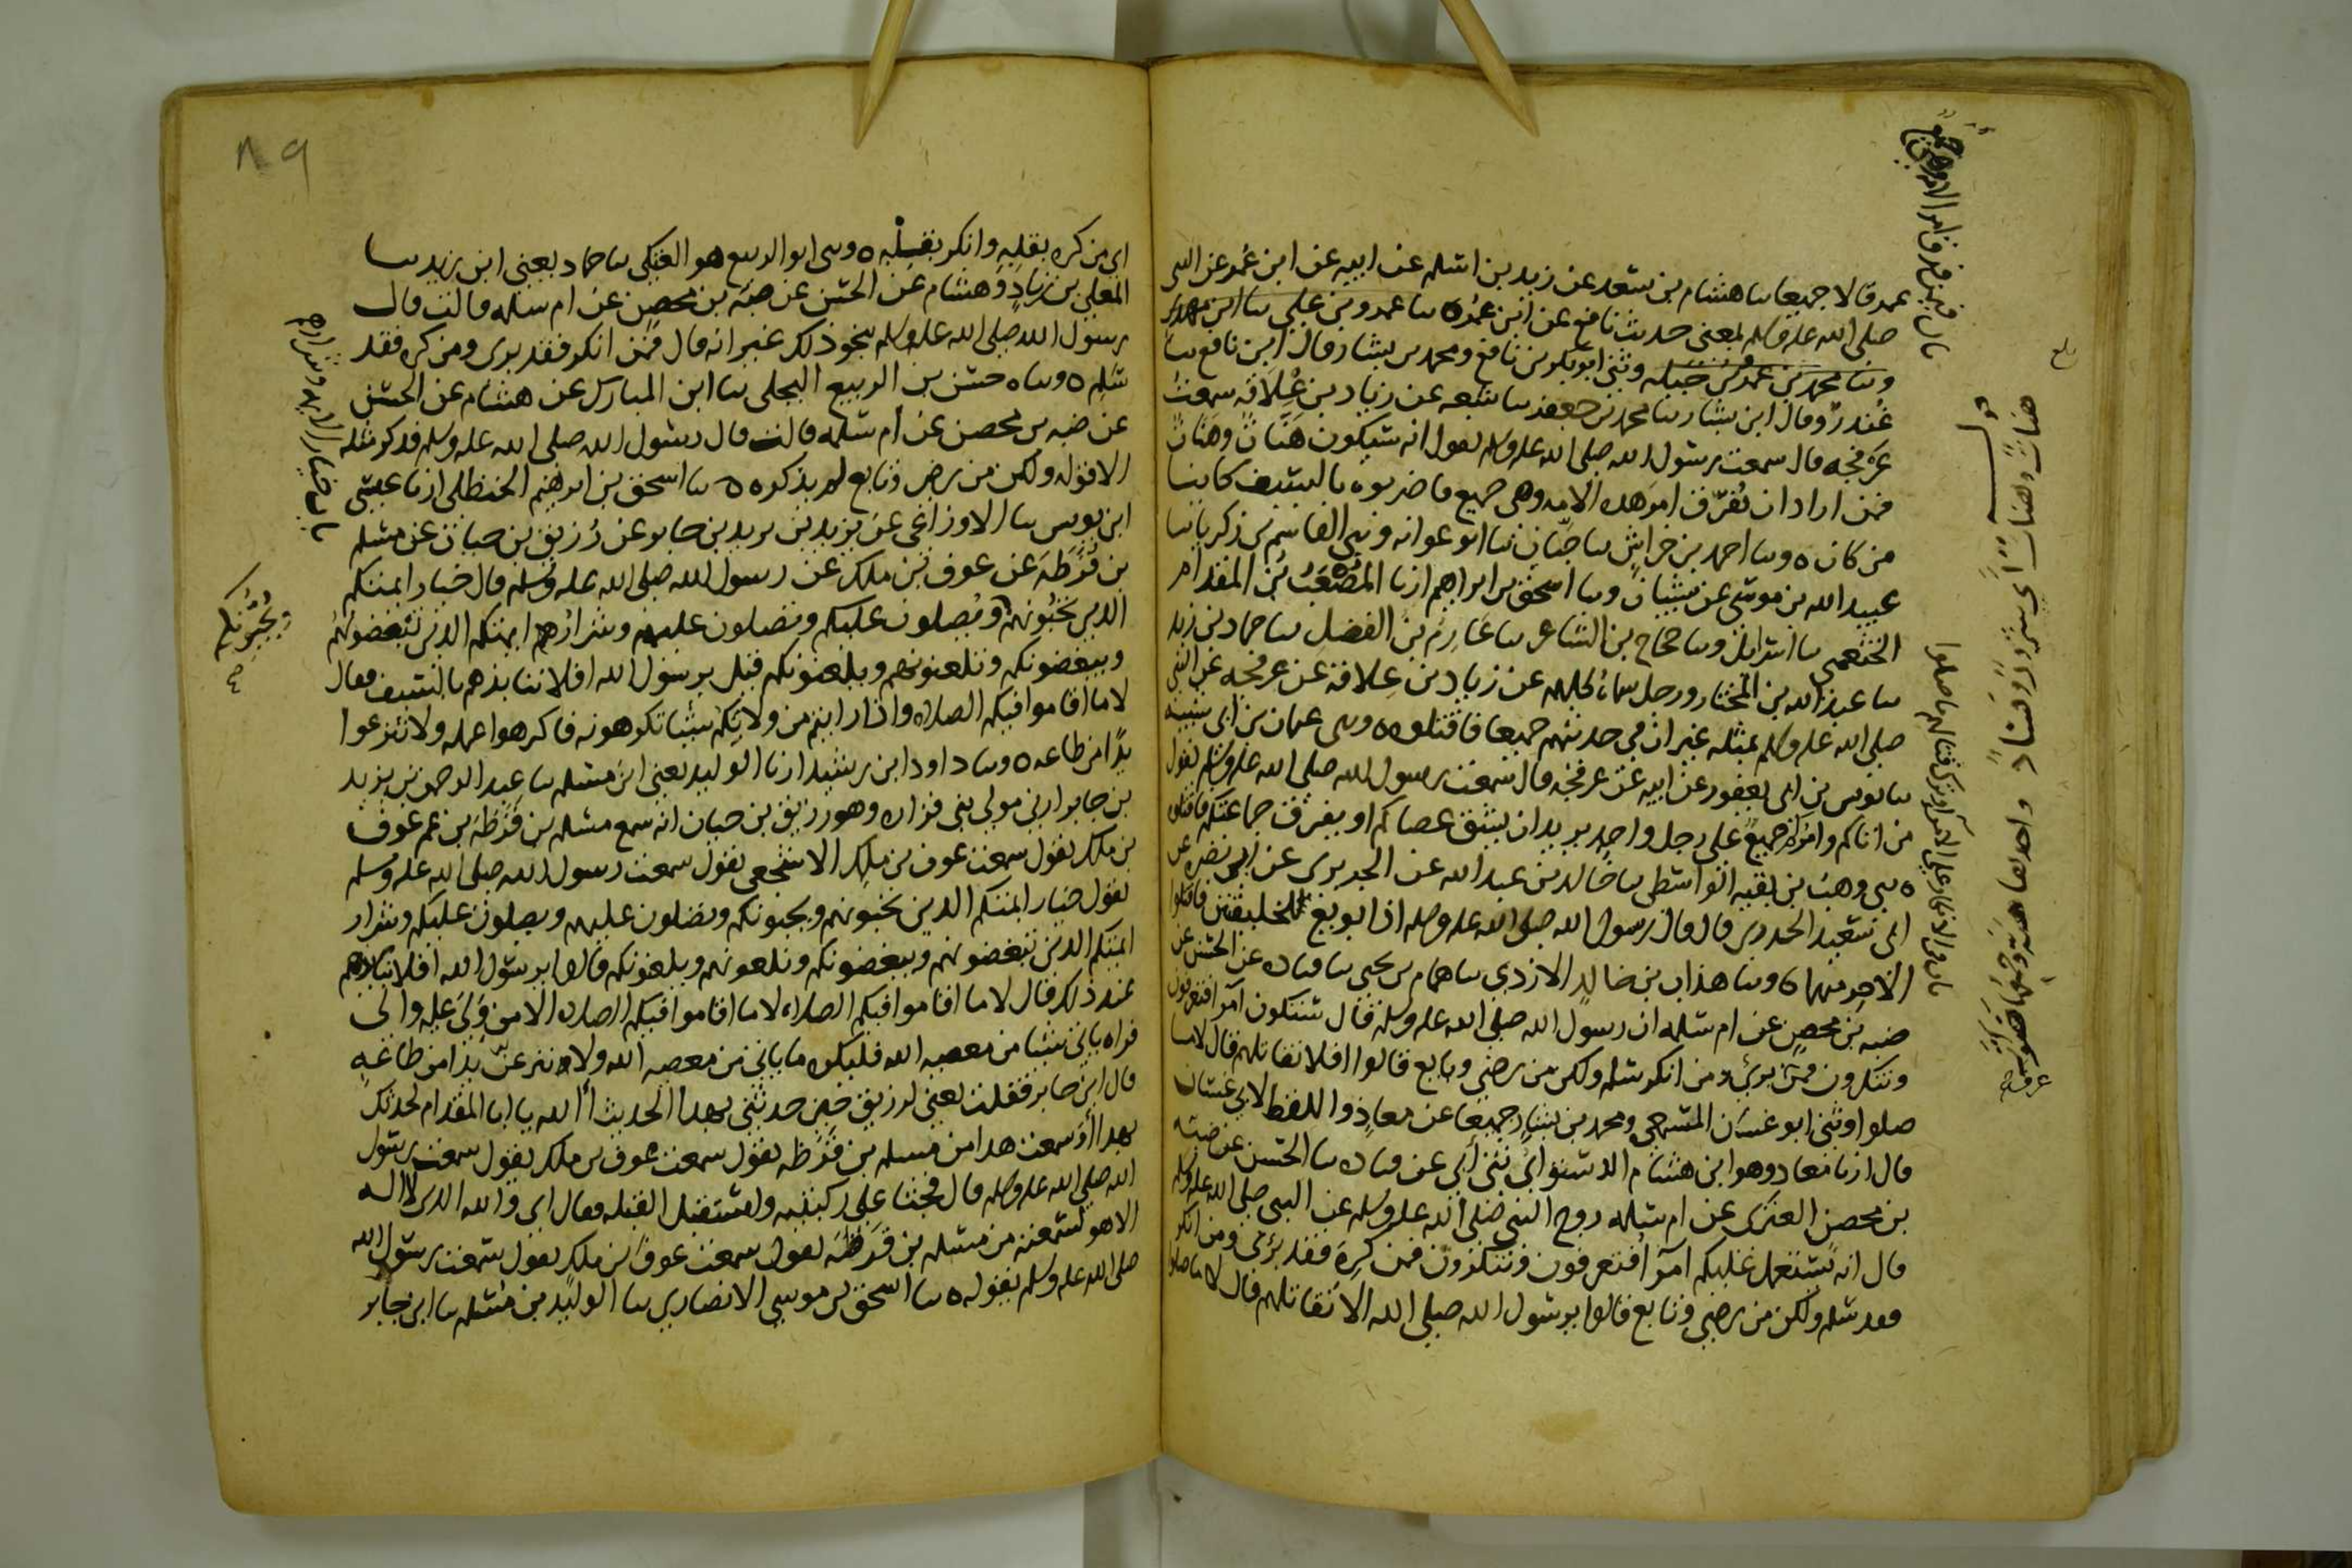 عمر قالا جميعا ثنا هشام بن سعد عن زيد بن اسلم عن ابيه عن ابن عمر عن النبي
صلى الله عليه وسلم بمعنى حديث نافع عن ابن عمر ٥ ثنا عمرو بن علي ثنا ابن مهدي
وثنا محمد بن عمرو بن جبله وثني ابو بكر بن نافع ومحمد بن بشار قال ابن نافع ثنا
غندر وقال ابن بشار ثنا محمد بن جعفر ثنا شعبه عن زياد بن علاقه سمعت
عرفجه قال سمعت رسول الله صلى الله عليه وسلم يقول انه ستكون هنات وهنات
فمن اراد ان يفرق امر هذه الامه وهي جميع فاضربوه بالسيف كاينا
من كان ٥ وثنا احمد بن خراش ثنا حبان ثنا ابو عوانه وثني القاسم بن زكريا ثنا
عبيد الله بن موسى عن شيبان وثنا اسحق بن ابراهيم ارنا المصعب بن المقدام
الخثعمي ثنا اسرايل وثنا حجاج بن الشاعر ثنا عارم بن الفضل ثنا حماد بن زيد
ثنا عبد الله بن المختار ورجل سماه كلهم عن زياد بن علاقه عن عرفجه عن النبي
صلى الله عليه وسلم بمثله غير ان في حديثهم جميعا فاقتلوه ٥ وثني عثمان بن ابي شيبه
ثنا يونس بن ابي يعفور عن ابيه عن عرفجه قال سمعت رسول الله صلى الله عليه وسلم يقول
من اتاكم وامركم جميع على رجل واحد يريد ان يشق عصاكم او يفرق جماعتكم فاقتلوه
٥ ثني وهب بن بقيه الواسطي ثنا خالد بن عبد الله عن الجريري عن ابي نضره عن
ابي سعيد الخدري قال قال رسول الله صلى الله عليه وسلم اذا بويع لخليفتين فاقتلوا
الاخر منهما ٥ وثنا هداب بن خالد الازدي ثنا همام بن يحيى ثنا قتاده عن الحسن عن
ضبه بن محصن عن ام سلمه ان رسول الله صلى الله عليه وسلم قال ستكون امرا فتعرفون
وتنكرون فمن بري ومن انكر سلم ولكن من رضي وتابع قالوا افلا نقاتلهم قال لا ما
صلوا وثني ابو غسان المسمعي ومحمد بن بشار جميعا عن معاذ واللفظ لابي غسان
قال ارنا معاذ وهو ابن هشام الدستوائي ثني ابي عن قتاده ثنا الحسن عن ضبه
بن محصن العنزي عن ام سلمه زوج النبي صلى الله عليه وسلم عن النبي صلى الله عليه وسلم
قال انه يستعمل عليكم امرا فتعرفون وتنكرون فمن كره فقد بري ومن انكر
فقد سلم ولكن من رضي وتابع قالوا يرسول الله صلى الله الا نقاتلهم قال لا ما صلوا
هنات وهنات اي شرور وفساد واحدتها هنه
باب في الانكار على الامرا وترك قتالهم ما صلوا
اي من كره بقلبه وانكر بقلبه ٥ وثني ابو الربيع هو العتكي ثنا حماد يعني ابن زيد ثنا
المعلى بن زياد وهشام عن الحسن عن ضبه بن محصن عن ام سلمه قالت قال
رسول الله صلى الله عليه وسلم بنحو ذلك غير انه قال فمن انكر فقد بري ومن كره فقد
سلم ٥ وثناه حسن بن الربيع البجلي ثنا ابن المبارك عن هشام عن الحسن
عن ضبه بن محصن عن ام سلمه قالت قال رسول الله صلى الله عليه وسلم فذكر مثله
الا قوله ولكن من رضي وتابع لم يذكره ٥ ثنا اسحق بن ابرهيم الحنظلي ارنا عيسى
ابن يونس ثنا الاوزاعي عن يزيد بن يزيد بن جابر عن رزيق بن حيان عن مسلم
بن قرظه عن عوف بن ملك عن رسول الله صلى الله عليه وسلم قال خيار ايمتكم
الذين تحبونهم ويصلون عليكم وتصلون عليهم وشرار ايمتكم الذين تبغضونهم
ويبغضونكم وتلعنونهم ويلعنونكم قيل يرسول الله افلا ننابذهم بالسيف فقال
لا ما اقاموا فيكم الصلاه واذا رايتم من ولاتكم شيئا تكرهونه فاكرهوا عمله ولا تنزعوا
يدا من طاعه ٥ وثنا داود ابن رشيد ارنا الوليد يعني ابن مسلم ثنا عبد الرحمن بن يزيد
بن جابر ارني مولى بني فزاره وهو رزيق بن حيان انه سمع مسلم بن قرظه بن عم عوف
بن ملك يقول سمعت عوف بن ملك الاشجعي يقول سمعت رسول الله صلى الله عليه وسلم
يقول خيار ايمتكم الذين تحبونهم ويحبونكم وتصلون عليهم ويصلون عليكم وشرار
ايمتكم الذين تبغضونهم ويبغضونكم وتلعنونهم ويلعنونكم قالوا يرسول الله افلا ننابذهم
عند ذلك قال لا ما اقاموا فيكم الصلاه لا ما اقاموا فيكم الصلاه الا من ولي عليه وال
فراه ياتي شيئا من معصيه الله فليكره ما ياتي من معصيه الله ولا ينزعن يدا من طاعه
قال ابن جابر فقلت يعني لرزيق حين حدثني بهذا الحديث االله يا ابا المقدام لحدثك
بهذا او سمعت هذا من مسلم بن قرظه يقول سمعت عوف بن ملك يقول سمعت رسول
الله صلى الله عليه وسلم قال فجثا على ركبتيه واستقبل القبله فقال اي والله الذي لا اله
الا هو لسمعته من مسلم بن قرظه يقول سمعت عوف ابن ملك يقول سمعت رسول الله
صلى الله عليه وسلم يقوله ٥ ثنا اسحق بن موسى الانصاري ثنا الوليد بن مسلم ثنا ابن جابر
باب خيار الايمه وشرارهم
ويحبونكم
٨٩